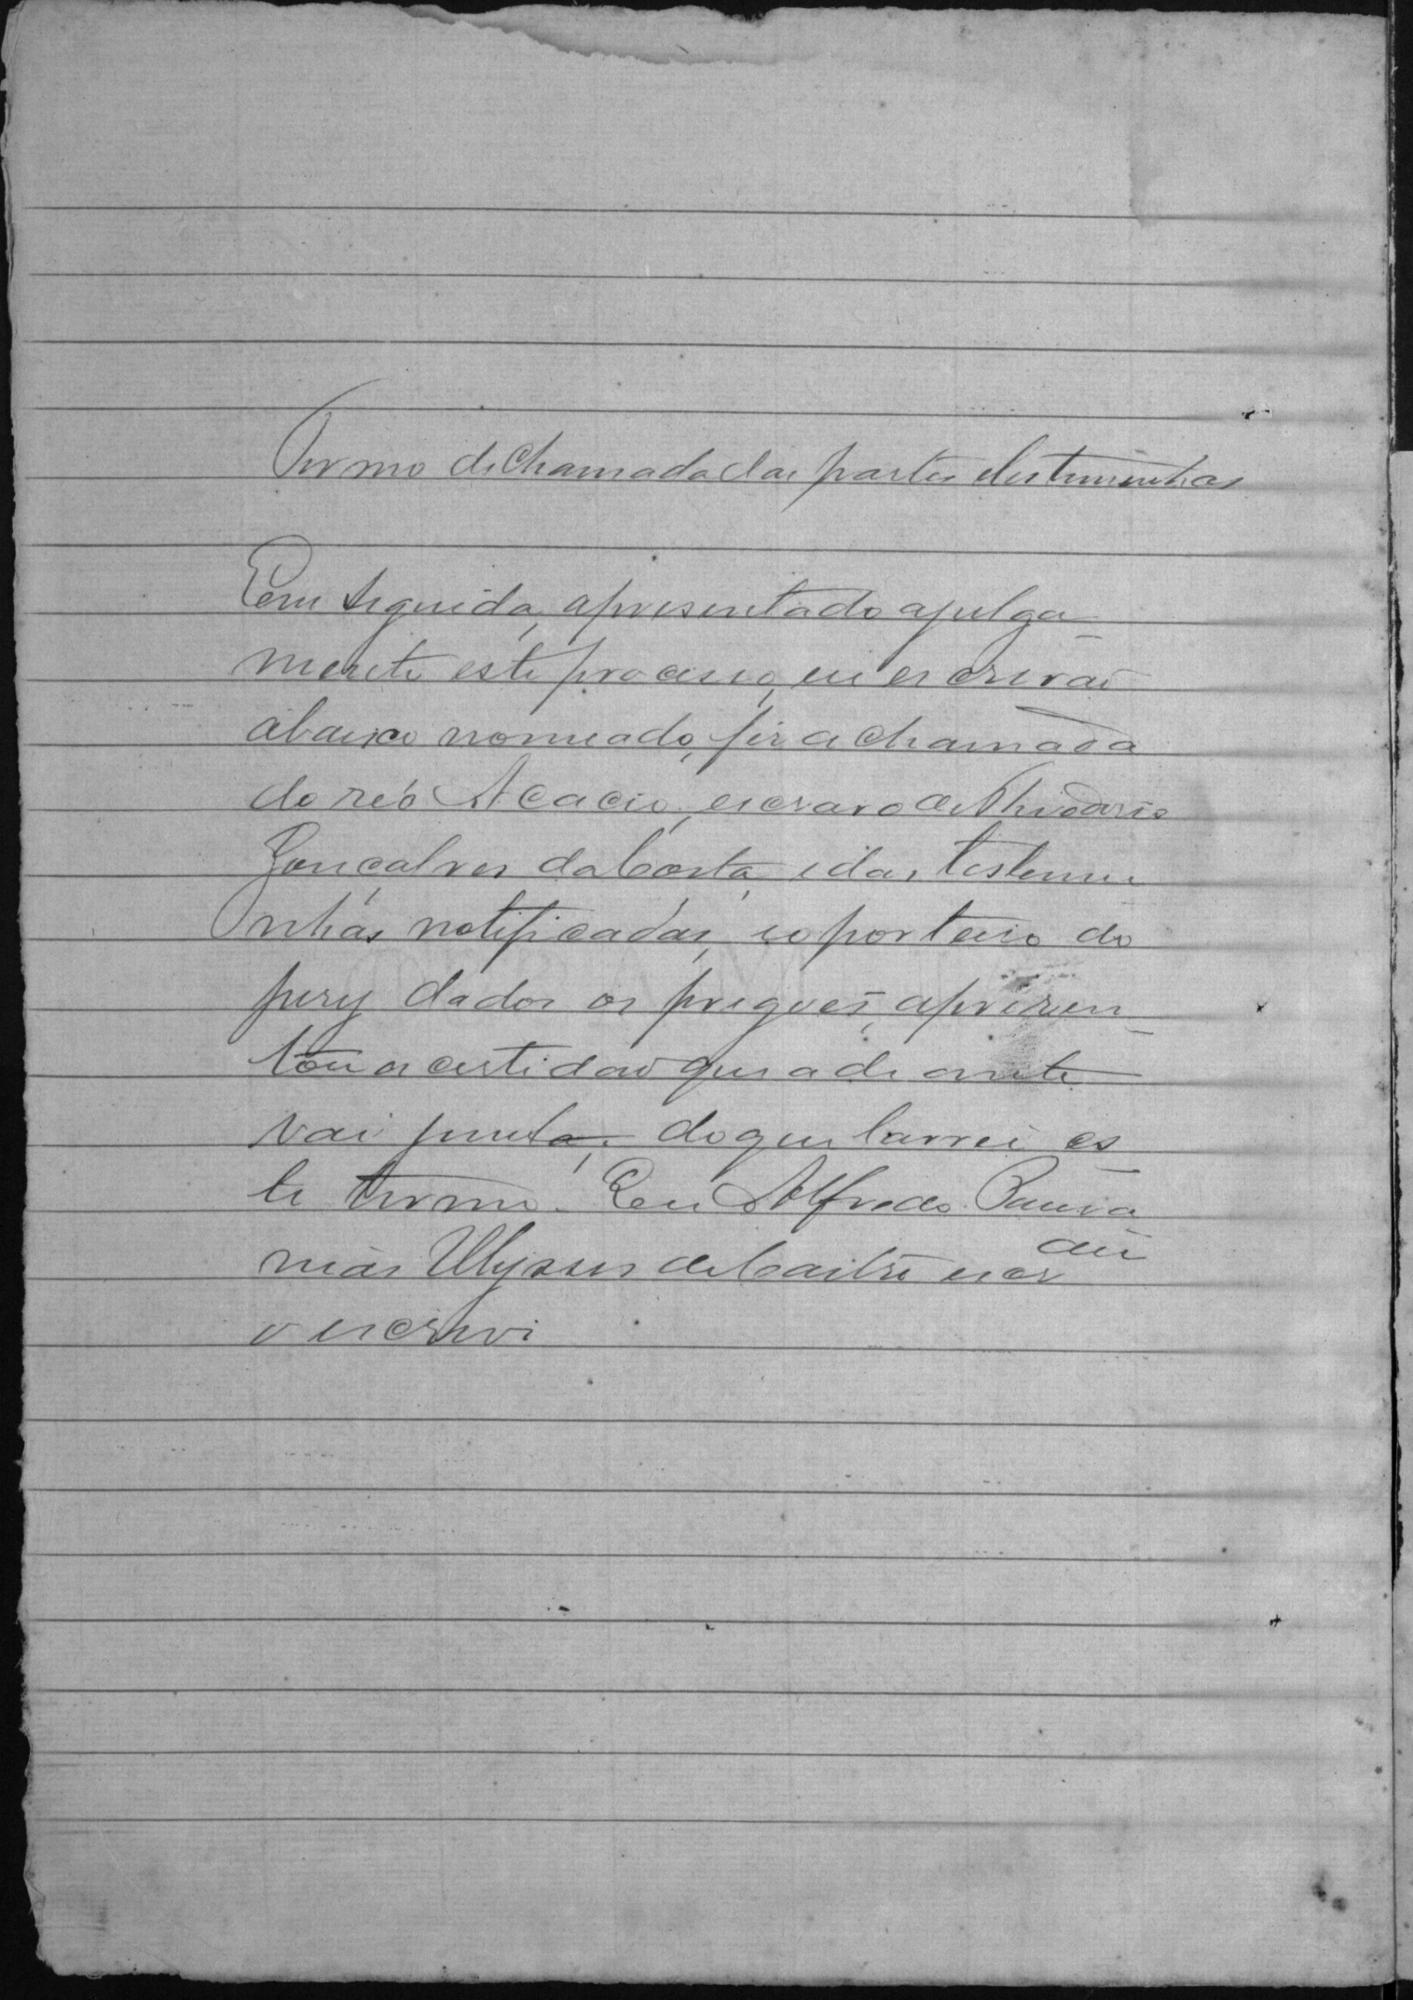 Termo de chamada das partes e testemunhas
Em seguida, apresentado a julga
mento este processo, eu escrivão
abaixo nomeado, fiz a chamada
do réo Acacio, escravo de
Gonçalves da Costa, e das testemu
nhas notificadas, e o porteiro do
jury dados os pregões, aprezen
tou a certidão que adeante
vai junta; do que lavrei es
te termo. Eu Alfredo
Ulysses de Castro escr
o escrevi